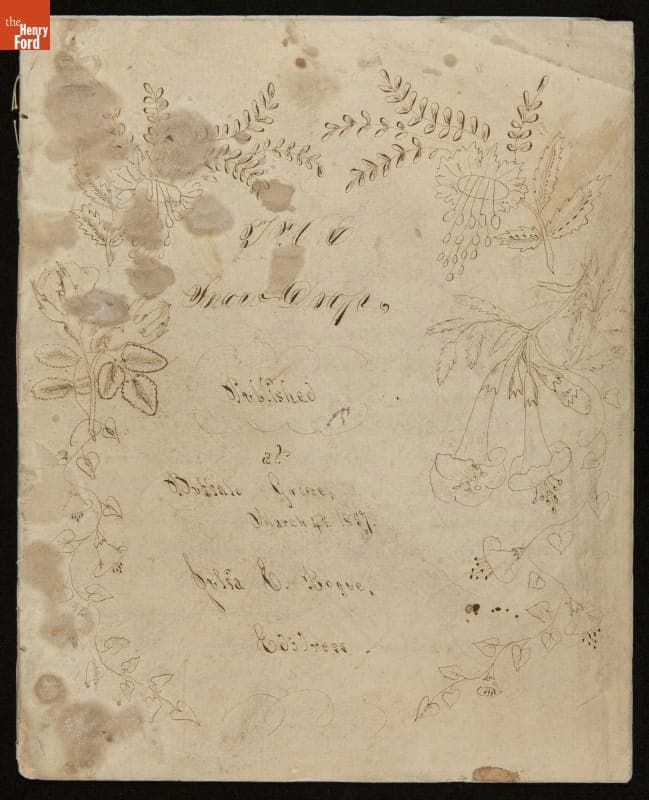 the
Henry
Ford
THE
Snow-Drop,
Published
at
Buffalo Grove,
March 4th 1857.
Julia E. Bogue,
Editress.